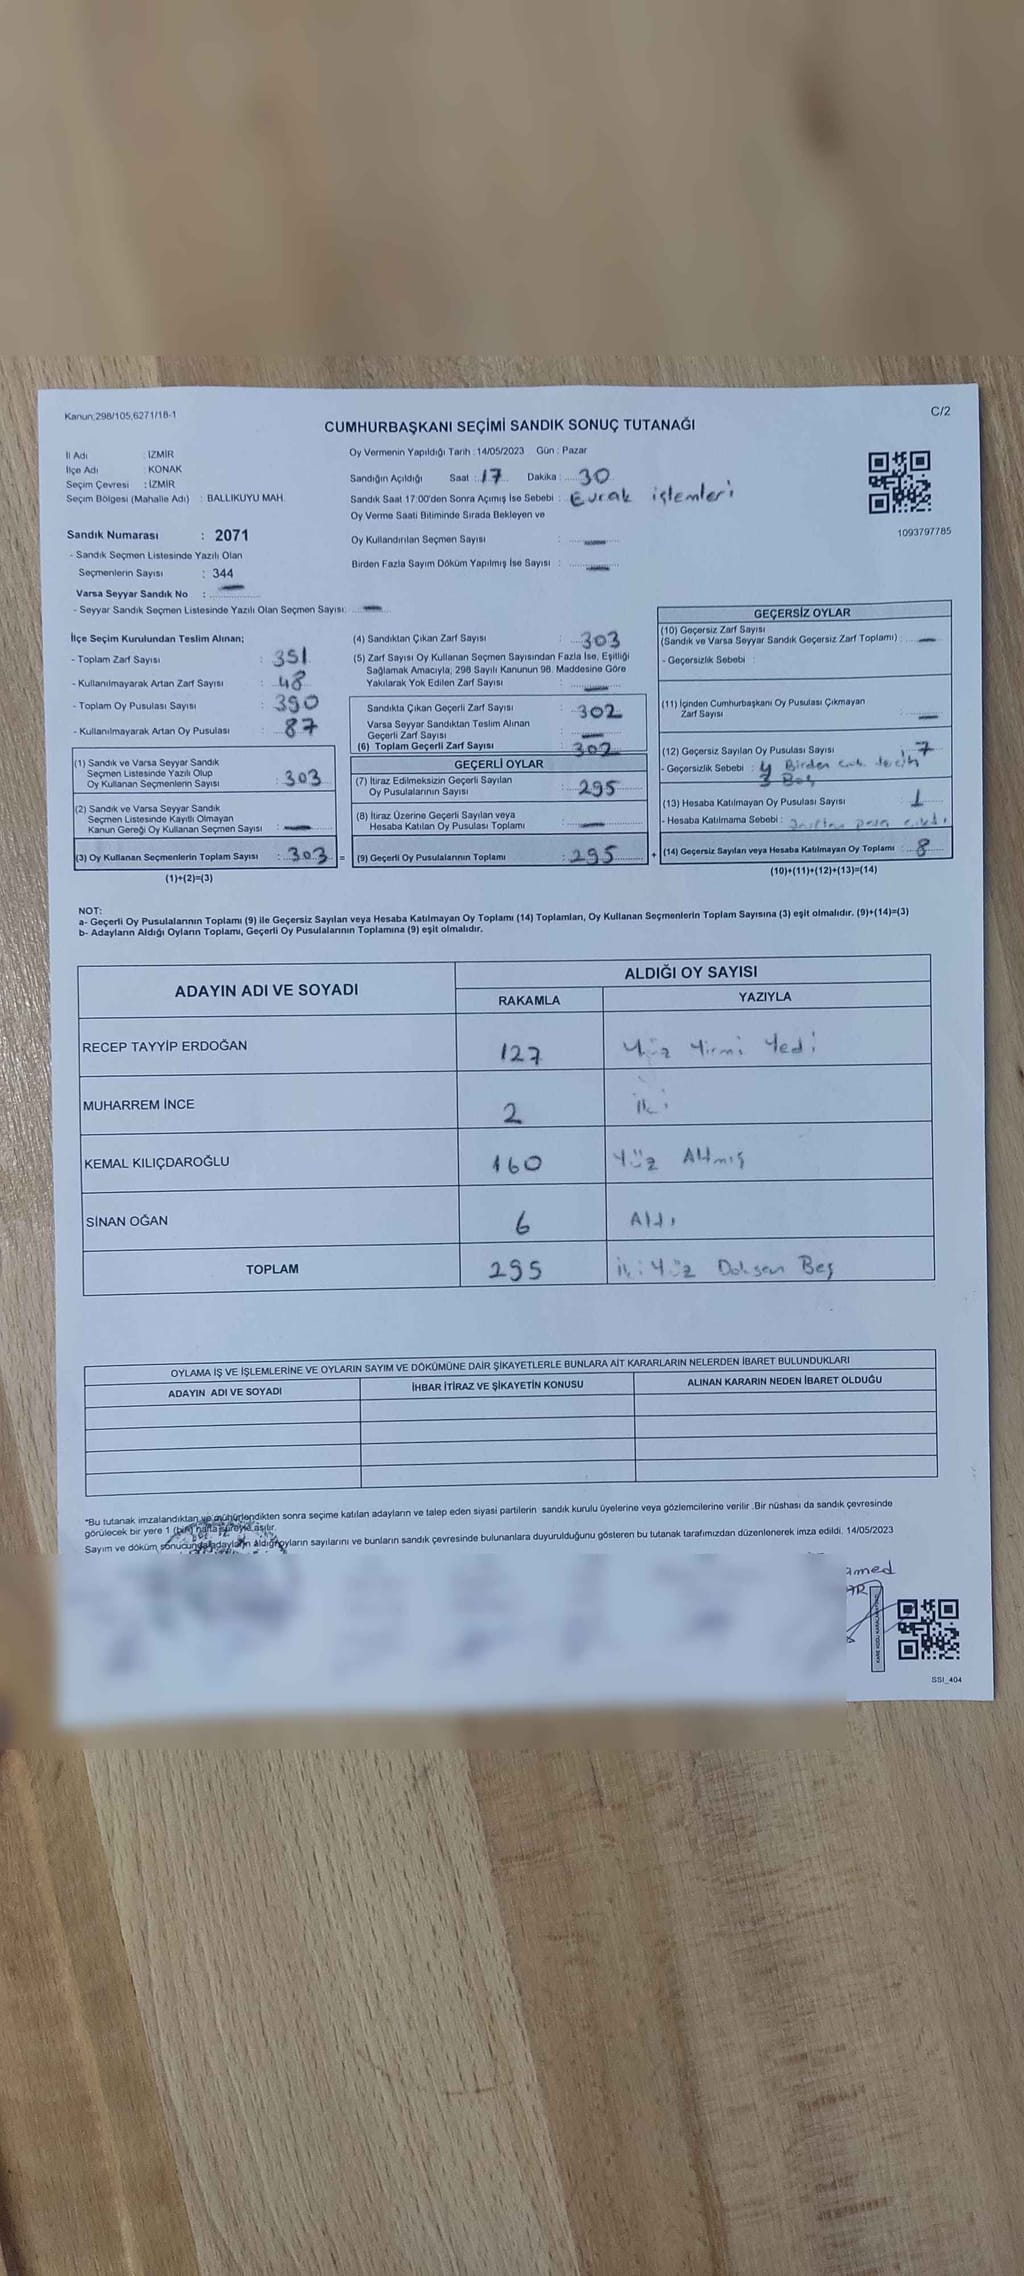 Kanun,298/105,6271/18-1
C/2
CUMHURBAŞKANI SEÇİMİ SANDIK SONUÇ TUTANAĞI
İl Adı : İZMİR
İlçe Adı : KONAK
Seçim Çevresi : İZMİR
Seçim Bölgesi (Mahalle Adı) : BALLIKUYU MAH.
Oy Vermenin Yapıldığı Tarih : 14/05/2023 Gün : Pazar
Sandığın Açıldığı Saat : 17 Dakika : 30
Sandık Saat 17:00'den Sonra Açımış İse Sebebi : Evrak işlemleri
Oy Verme Saati Bitiminde Sırada Bekleyen ve
Oy Kullandırılan Seçmen Sayısı : —
Birden Fazla Sayım Döküm Yapılmış İse Sayısı : —
1093797785
Sandık Numarası : 2071
- Sandık Seçmen Listesinde Yazılı Olan
Seçmenlerin Sayısı : 344
Varsa Seyyar Sandık No : —
- Seyyar Sandık Seçmen Listesinde Yazılı Olan Seçmen Sayısı: —
İlçe Seçim Kurulundan Teslim Alınan;
- Toplam Zarf Sayısı : 351
- Kullanılmayarak Artan Zarf Sayısı : 48
- Toplam Oy Pusulası Sayısı : 390
- Kullanılmayarak Artan Oy Pusulası : 87
(1) Sandık ve Varsa Seyyar Sandık
Seçmen Listesinde Yazılı Olup
Oy Kullanan Seçmenlerin Sayısı : 303
(2) Sandık ve Varsa Seyyar Sandık
Seçmen Listesinde Kayıtlı Olmayan
Kanun Gereği Oy Kullanan Seçmen Sayısı : —
(3) Oy Kullanan Seçmenlerin Toplam Sayısı : 303 =
(1)+(2)=(3)
(4) Sandıktan Çıkan Zarf Sayısı : 303
(5) Zarf Sayısı Oy Kullanan Seçmen Sayısından Fazla İse, Eşitliği
Sağlamak Amacıyla, 298 Sayılı Kanunun 98. Maddesine Göre
Yakılarak Yok Edilen Zarf Sayısı : —
Sandıkta Çıkan Geçerli Zarf Sayısı : 302
Varsa Seyyar Sandıktan Teslim Alınan
Geçerli Zarf Sayısı : —
(6) Toplam Geçerli Zarf Sayısı : 302
GEÇERLİ OYLAR
(7) İtiraz Edilmeksizin Geçerli Sayılan
Oy Pusulalarının Sayısı : 295
(8) İtiraz Üzerine Geçerli Sayılan veya
Hesaba Katılan Oy Pusulası Toplamı : —
(9) Geçerli Oy Pusulalarının Toplamı : 295 +
GEÇERSİZ OYLAR
(10) Geçersiz Zarf Sayısı
(Sandık ve Varsa Seyyar Sandık Geçersiz Zarf Toplamı) : —
- Geçersizlik Sebebi :
(11) İçinden Cumhurbaşkanı Oy Pusulası Çıkmayan
Zarf Sayısı : —
(12) Geçersiz Sayılan Oy Pusulası Sayısı : 7
- Geçersizlik Sebebi : 4 Birden çok tercih
3 Boş
(13) Hesaba Katılmayan Oy Pusulası Sayısı : 1
- Hesaba Katılmama Sebebi : para
(14) Geçersiz Sayılan veya Hesaba Katılmayan Oy Toplamı : 8
(10)+(11)+(12)+(13)=(14)
NOT:
a- Geçerli Oy Pusulalarının Toplamı (9) ile Geçersiz Sayılan veya Hesaba Katılmayan Oy Toplamı (14) Toplamları, Oy Kullanan Seçmenlerin Toplam Sayısına (3) eşit olmalıdır. (9)+(14)=(3)
b- Adayların Aldığı Oyların Toplamı, Geçerli Oy Pusulalarının Toplamına (9) eşit olmalıdır.
ADAYIN ADI VE SOYADI
ALDIĞI OY SAYISI
RAKAMLA YAZIYLA
RECEP TAYYİP ERDOĞAN 127 Yüz Yirmi Yedi
MUHARREM İNCE 2 iki
KEMAL KILIÇDAROĞLU 160 Yüz Altmış
SİNAN OĞAN 6 Altı
TOPLAM 295 iki Yüz Doksan Beş
OYLAMA İŞ VE İŞLEMLERİNE VE OYLARIN SAYIM VE DÖKÜMÜNE DAİR ŞİKAYETLERLE BUNLARA AİT KARARLARIN NELERDEN İBARET BULUNDUKLARI
ADAYIN ADI VE SOYADI İHBAR İTİRAZ VE ŞİKAYETİN KONUSU ALINAN KARARIN NEDEN İBARET OLDUĞU
*Bu tutanak imzalandıktan ve mühürlendikten sonra seçime katılan adayların ve talep eden siyasi partilerin sandık kurulu üyelerine veya gözlemcilerine verilir .Bir nüshası da sandık çevresinde
görülecek bir yere 1 (bir) hafta süreyle asılır.
Sayım ve döküm sonucunda adayların aldığı oyların sayılarını ve bunların sandık çevresinde bulunanlara duyurulduğunu gösteren bu tutanak tarafımızdan düzenlenerek imza edildi. 14/05/2023
amed
AR
SSI_404